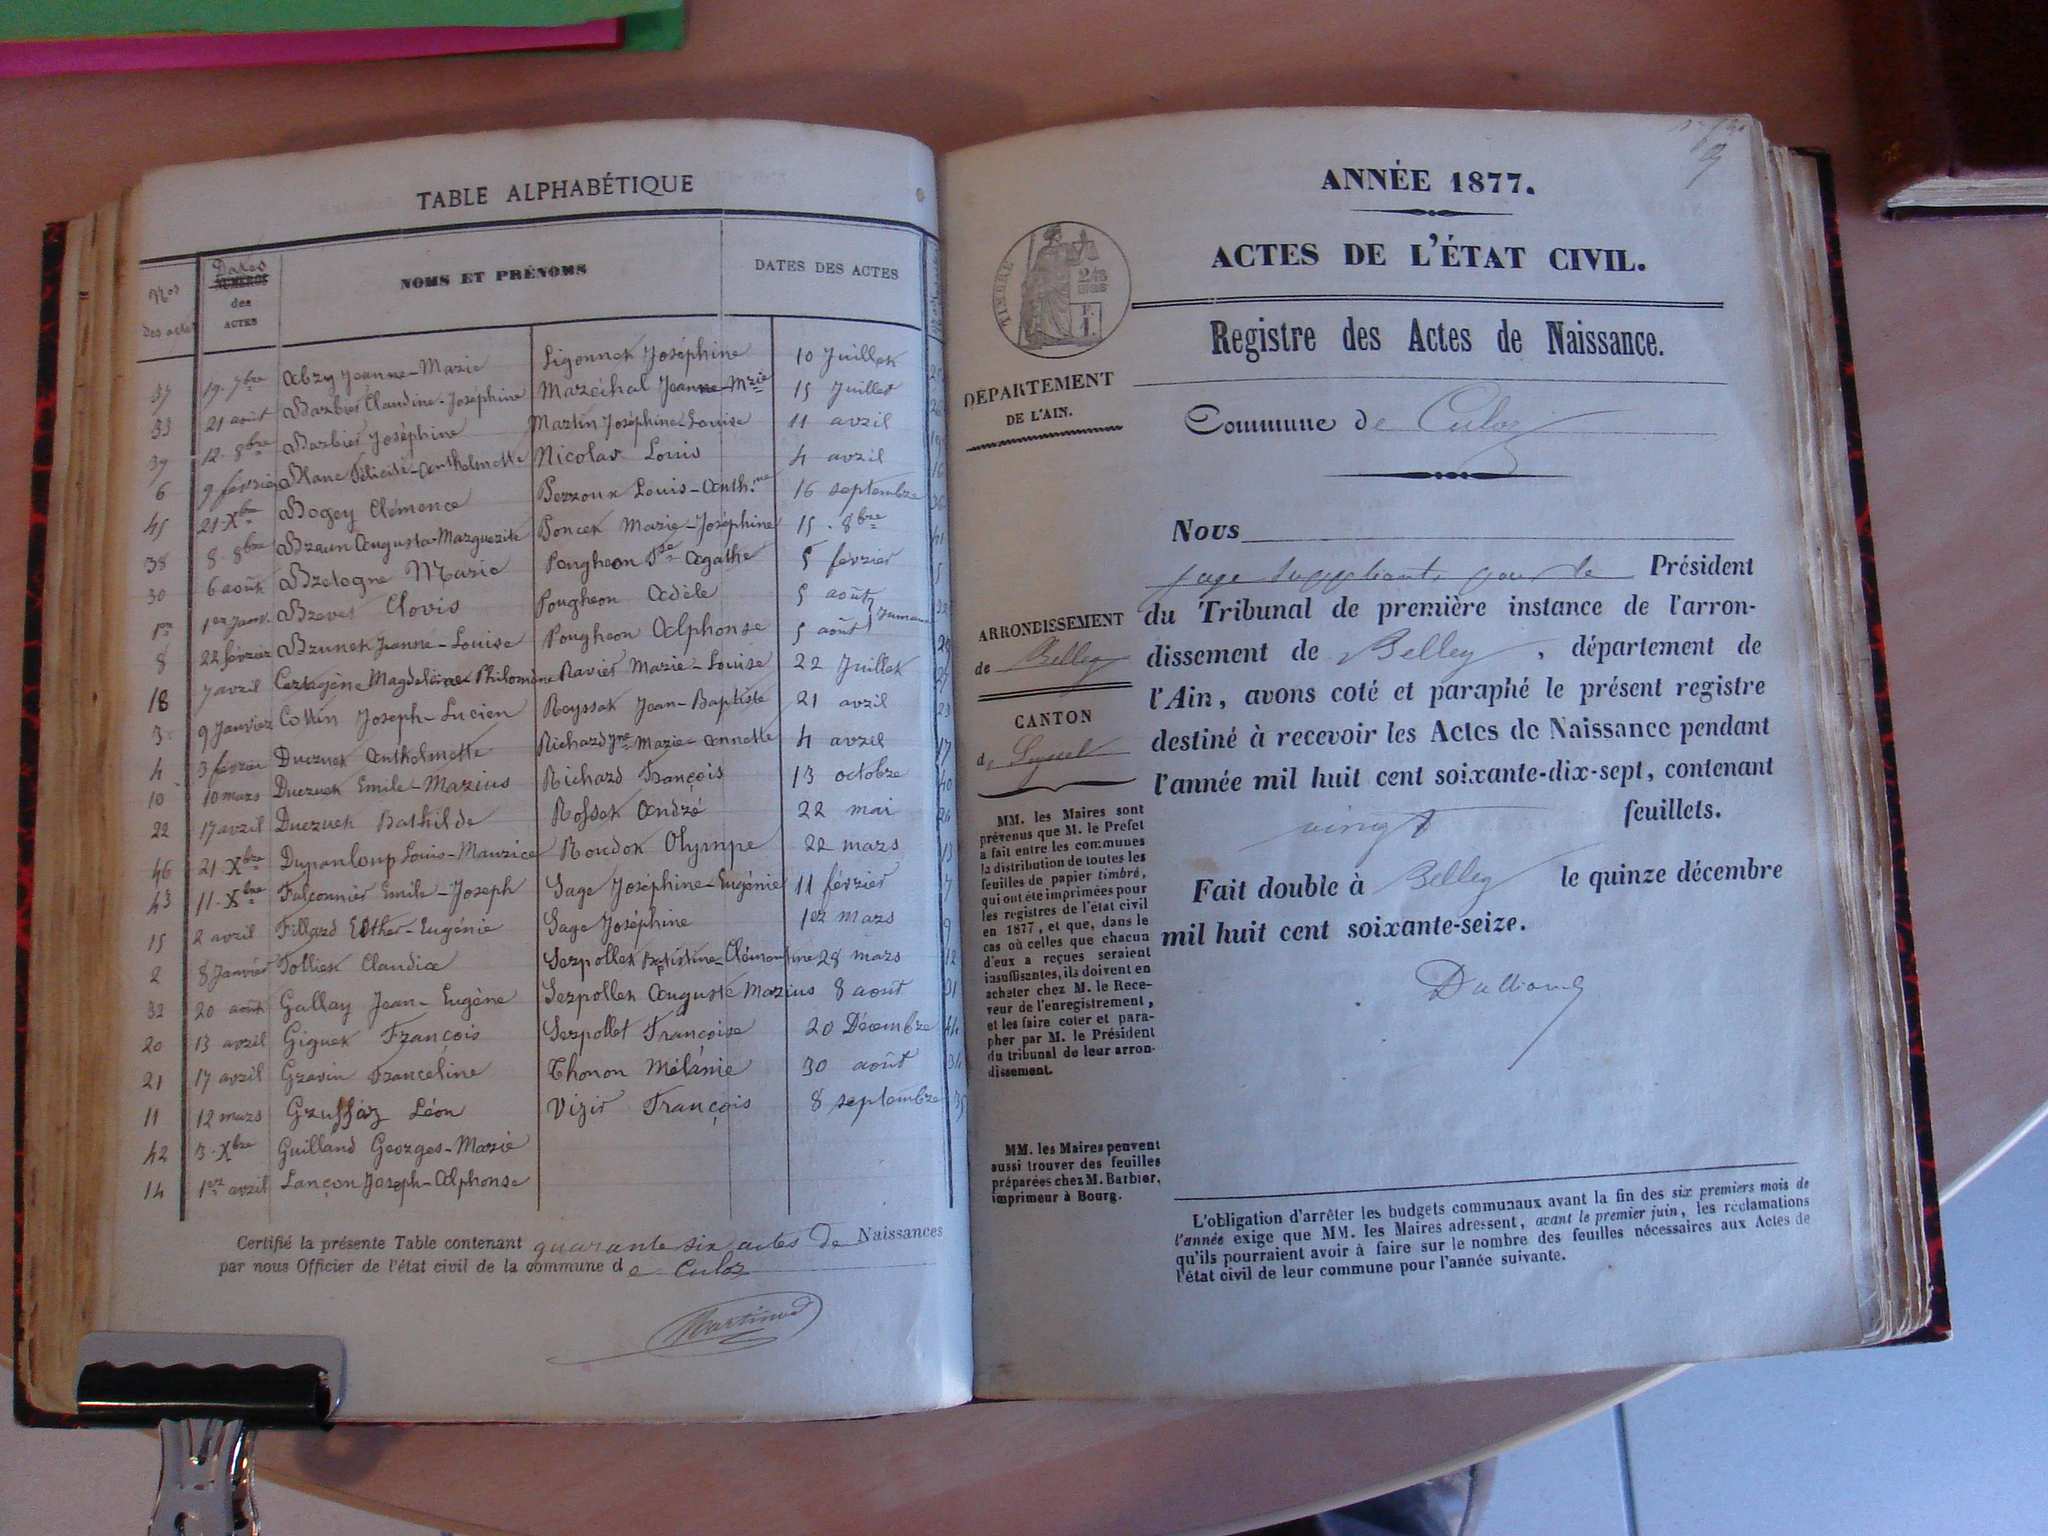 TABLE ALPHABÉTIQUE
Nos des actes
Dates
NUMÉROS
des
ACTES
NOMS ET PRÉNOMS
DATES DES ACTES
37 19 7bre Abry Jeanne-Marie
33 21 août Barbier Claudine-Joséphine
39 12 8bre Barbier Joséphine
6 9 février Blanc Félicité-Anthelmette
45 21 Xbre Bogey Clémence
38 8 8bre Braun Augusta-Marguerite
30 6 août Bretogne Marie
1er 1er Janv. Brevet Clovis
8 22 février Brunet Jeanne-Louise
18 7 avril Magdeleine-Philomène
3 9 Janvier Collin Joseph-Lucien
4 3 février Ducruet Anthelmette
10 10 mars Ducruet Emile-Marius
22 17 avril Ducruet Bathilde
46 21 Xbre Dupanloup Louis-Maurice
43 11 Xbre Falconnier Emile-Joseph
15 2 avril Fillard Esther-Eugénie
2 8 Janvier Folliet Claudia
32 20 août Gallay Jean-Eugène
20 13 avril Giguet François
21 17 avril Gravin Franceline
11 12 mars Gruffaz Léon
42 3 Xbre Guilland Georges-Marie
14 1er avril Lançon Joseph-Alphonse
Ligonnet Joséphine 10 Juillet
Maréchal Jeanne-Mrie 15 Juillet
Martin Joséphine-Louise 11 avril
Nicolas Louis 4 avril 16
Perroux Louis-Anth.me 16 septembre 36
Poncet Marie-Joséphine 15 8bre 41
Pougheon Agathe 5 février 5
Pougheon Adèle 5 août
Pougheon Alphonse 5 août 29
Jumeaux
Ravier Marie-Louise 22 Juillet 27
Reyssat Jean-Baptiste 21 avril 23
Richard Marie-Annette 4 avril 17
Richard François 13 octobre 40
Rosset André 22 mai 24
Roudot Olympe 22 mars 13
Sage Joséphine-Eugénie 11 février 7
Sage Joséphine 1er mars 9
Serpollet Batistine-Clémentine 28 mars 12
Serpollet Auguste Marius 8 août 31
Serpollet Françoise 20 Décembre 44
Thonon Mélanie 30 août 34
Vizir François 8 septembre 35
Certifié la présente Table contenant quarante six actes de Naissances
par nous Officier de l'état civil de la commune de Culoz
Martinod
ANNÉE 1877.
ACTES DE L'ÉTAT CIVIL.
TIMBRE
Registre des Actes de Naissance.
DÉPARTEMENT
DE L'AIN.
Commune de Culoz
Nous
juge suppléant pour le Président
du Tribunal de première instance de l'arron-
dissement de Belley, département de
l'Ain, avons coté et paraphé le présent registre
destiné à recevoir les Actes de Naissance pendant
l'année mil huit cent soixante-dix-sept, contenant
vingt feuillets.
Fait double à Belley le quinze décembre
mil huit cent soixante-seize.
ARRONDISSEMENT
de Belley
CANTON
de Seyssel
MM. les Maires sont
prévenus que M. le Préfet
a fait entre les communes
la distribution de toutes les
feuilles de papier timbré,
qui ont été imprimées pour
les registres de l'état civil
en 1877, et que, dans le
cas où celles que chacun
d'eux a reçues seraient
insuffisantes, ils doivent en
acheter chez M. le Rece-
veur de l'enregistrement,
et les faire coter et para-
pher par M. le Président
du tribunal de leur arron-
dissement.
MM. les Maires peuvent
aussi trouver des feuilles
préparées chez M. Barbier,
imprimeur à Bourg.
L'obligation d'arrêter les budgets communaux avant la fin des six premiers mois de
l'année exige que MM. les Maires adressent, avant le premier juin, les réclamations
qu'ils pourraient avoir à faire sur le nombre des feuilles nécessaires aux Actes de
l'état civil de leur commune pour l'année suivante.